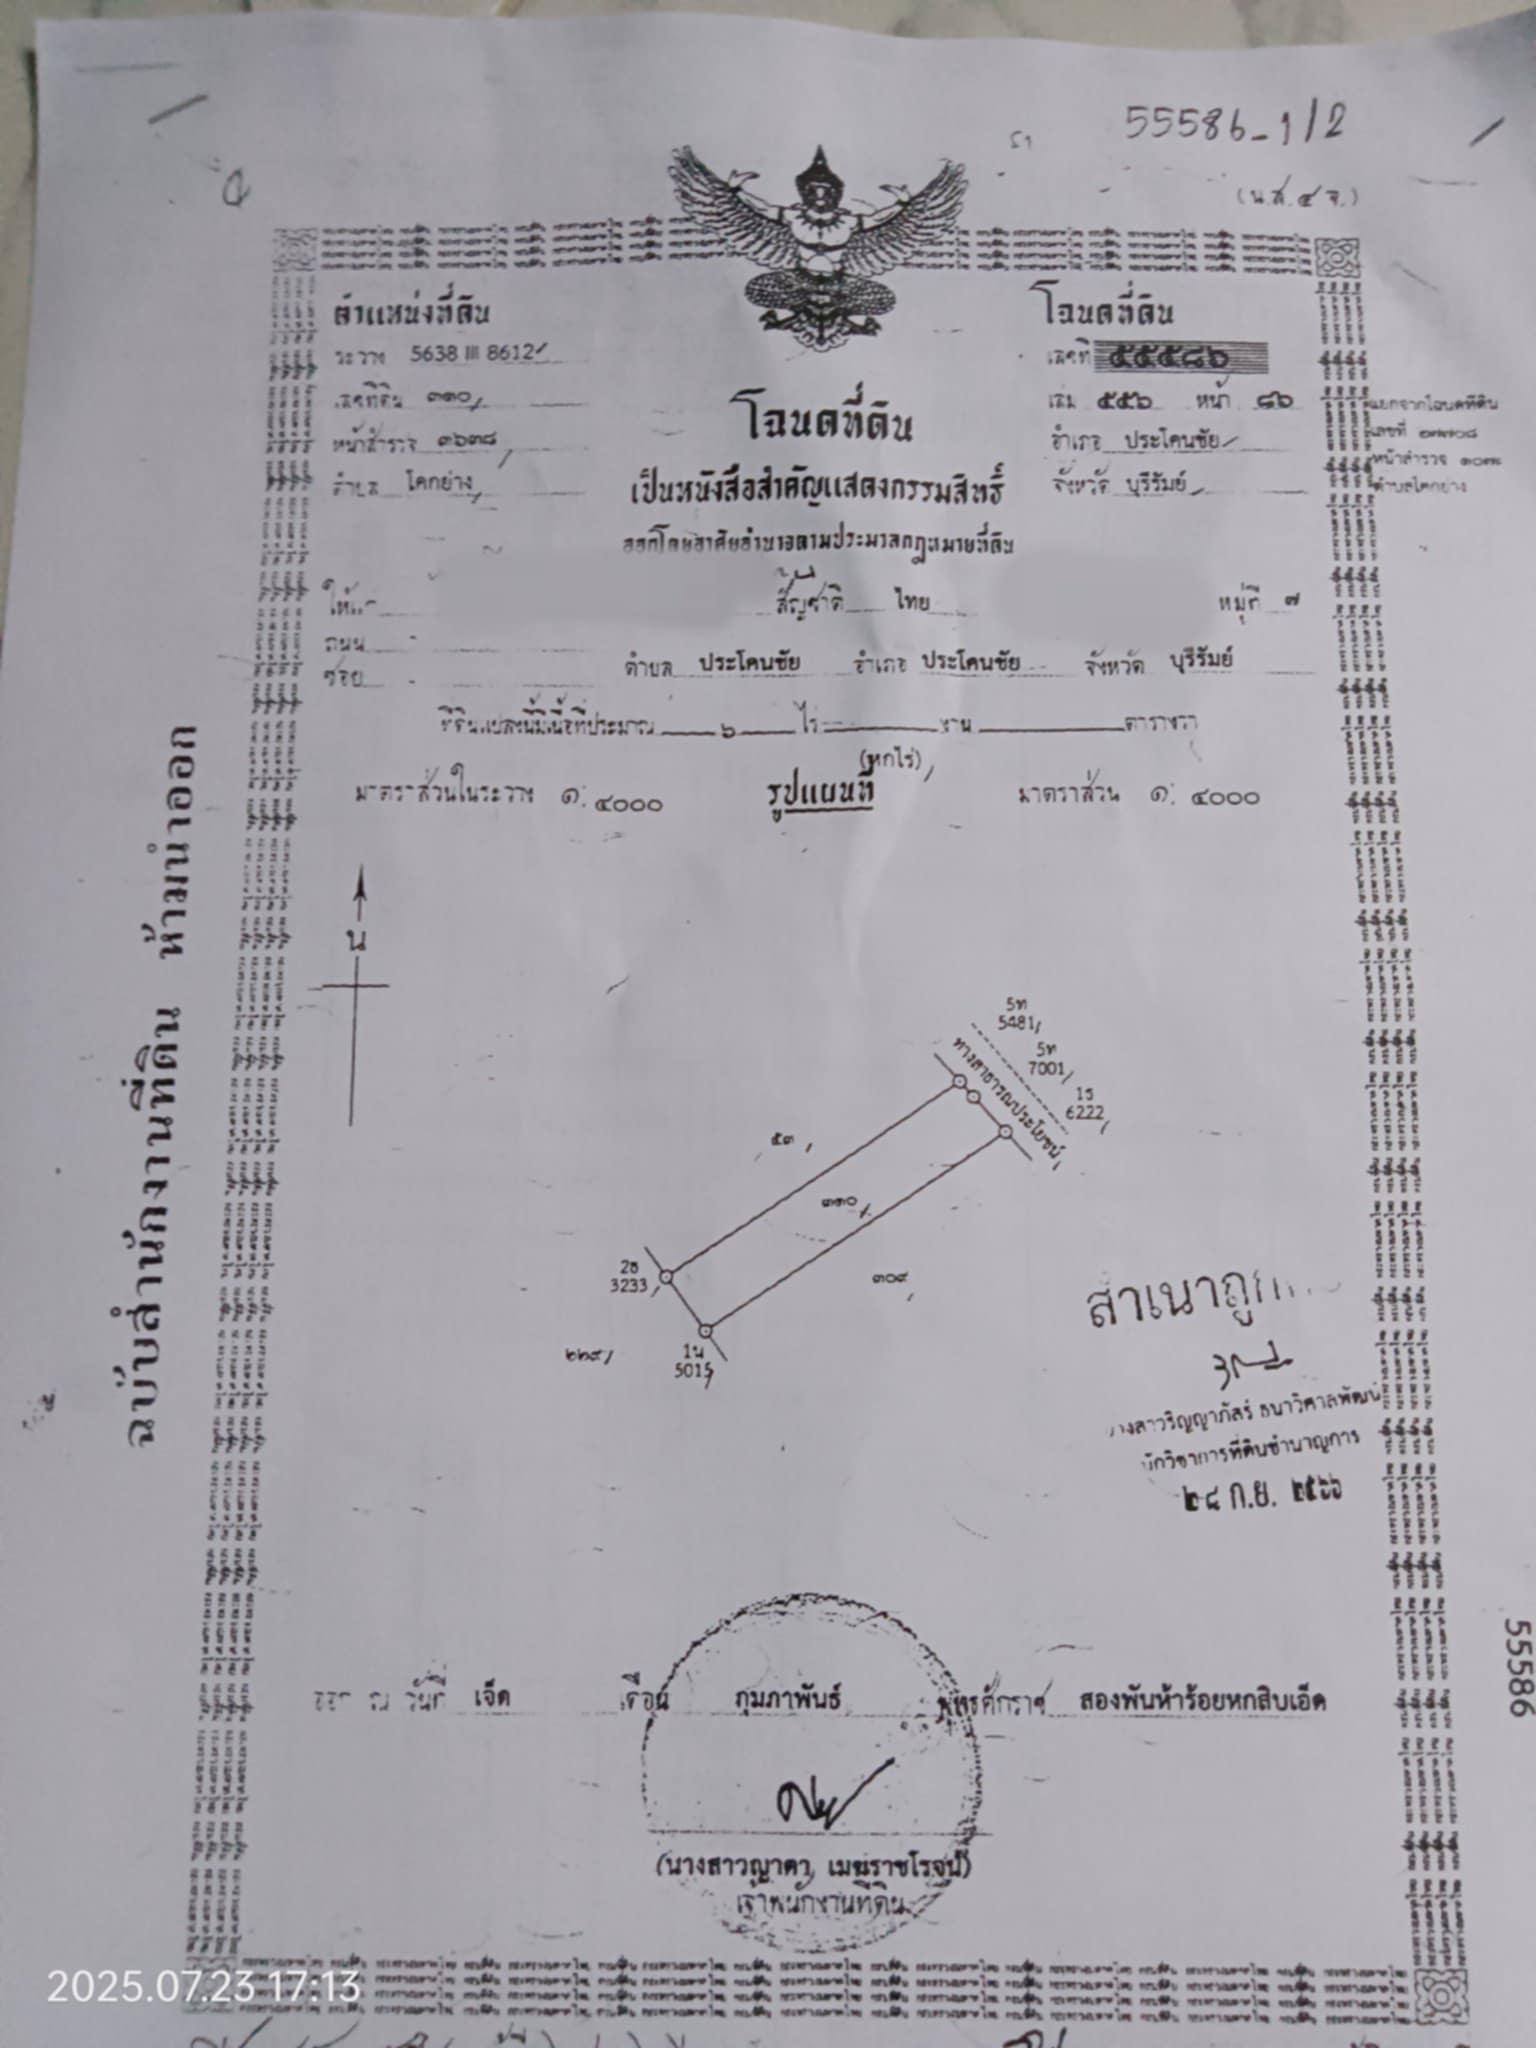 55586-1/2
(น.ส. ๔ จ.)
ตำแหน่งที่ดิน
ระวาง 5638 III 8612
เลขที่ดิน ๓๓๐
หน้าสำรวจ ๓๖๓๘
ตำบล โคกย่าง
โฉนดที่ดิน
เลขที่ ๕๕๕๘๖
เล่ม ๕๕๖ หน้า ๘๖
อำเภอ ประโคนชัย
จังหวัด บุรีรัมย์
แยกจากโฉนดที่ดิน
เลขที่
หน้าสำรวจ
ตำบลโคกย่าง
โฉนดที่ดิน
เป็นหนังสือสำคัญแสดงกรรมสิทธิ์
ออกโดยอาศัยอำนาจตามประมวลกฎหมายที่ดิน
ให้แก่ สัญชาติ ไทย หมู่ที่ ๗
ถนน
ซอย ตำบล ประโคนชัย อำเภอ ประโคนชัย จังหวัด บุรีรัมย์
ที่ดินแปลงนี้มีเนื้อที่ประมาณ ๖ ไร่ งาน ตารางวา
(หกไร่)
มาตราส่วนในระวาง ๑: ๔๐๐๐ รูปแผนที่ มาตราส่วน ๑: ๔๐๐๐
น
5ท
5481
5ท
7001
1ธ
6222
ทางสาธารณประโยชน์
๕๓
๓๓๐
๓๐๙
2ธ
3233
๒๒๙
1น
5015
สำเนาถูก
นางสาวริญญาภัสร์ ธนาวิศาลพัฒน์
นักวิชาการที่ดินชำนาญการ
๒๘ ก.ย. ๒๕๖๖
ฉบับสำนักงานที่ดิน ห้ามนำออก
55586
ออก ณ วันที่ เจ็ด เดือน กุมภาพันธ์ พุทธศักราช สองพันห้าร้อยหกสิบเอ็ด
(นางสาวญาดา เมฆราชโรจน์)
เจ้าพนักงานที่ดิน
2025.07.23 17:13